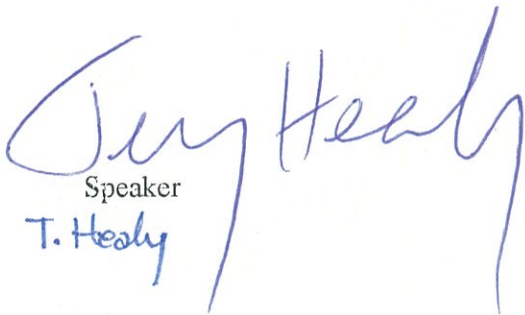 Terry Healy
Speaker
T. Healy